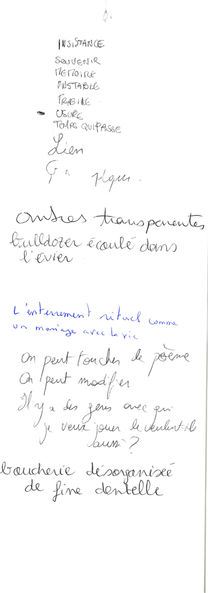 INSISTANCE
SOUVENIR
MEMOIRE
INSTABLE
FRAGILE
USURE
TEMPS QUI PASSE
Lien
ombres transparentes
bulldozer écoulé dans
l'évier
L'enterrement rituel comme
un mariage avec la vie
On peut toucher le poème
On peut modifier
Il y a des gens avec qui
je veux jouer le veulent-ils
aussi ?
boucherie désorganisée
de fine dentelle